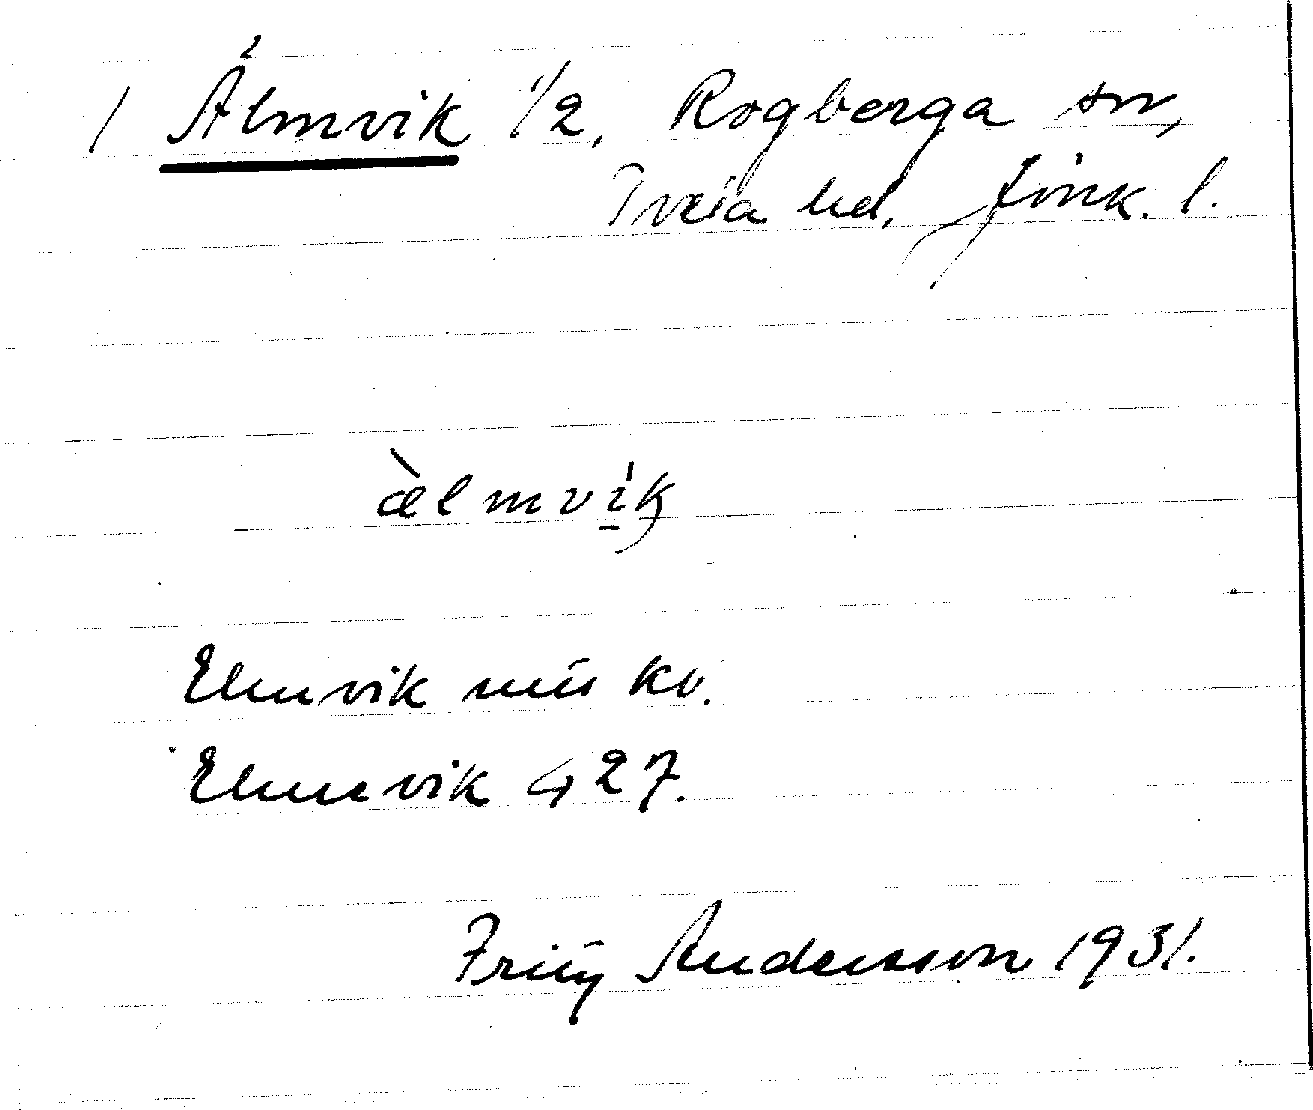 / Älmvik 1/2, Rogberga sn,
Tveta hd, Jönk. l.
æ̀lmvík
Elmvik nüs kv.
Elmvik 427.
Fritz Andersson 1931.